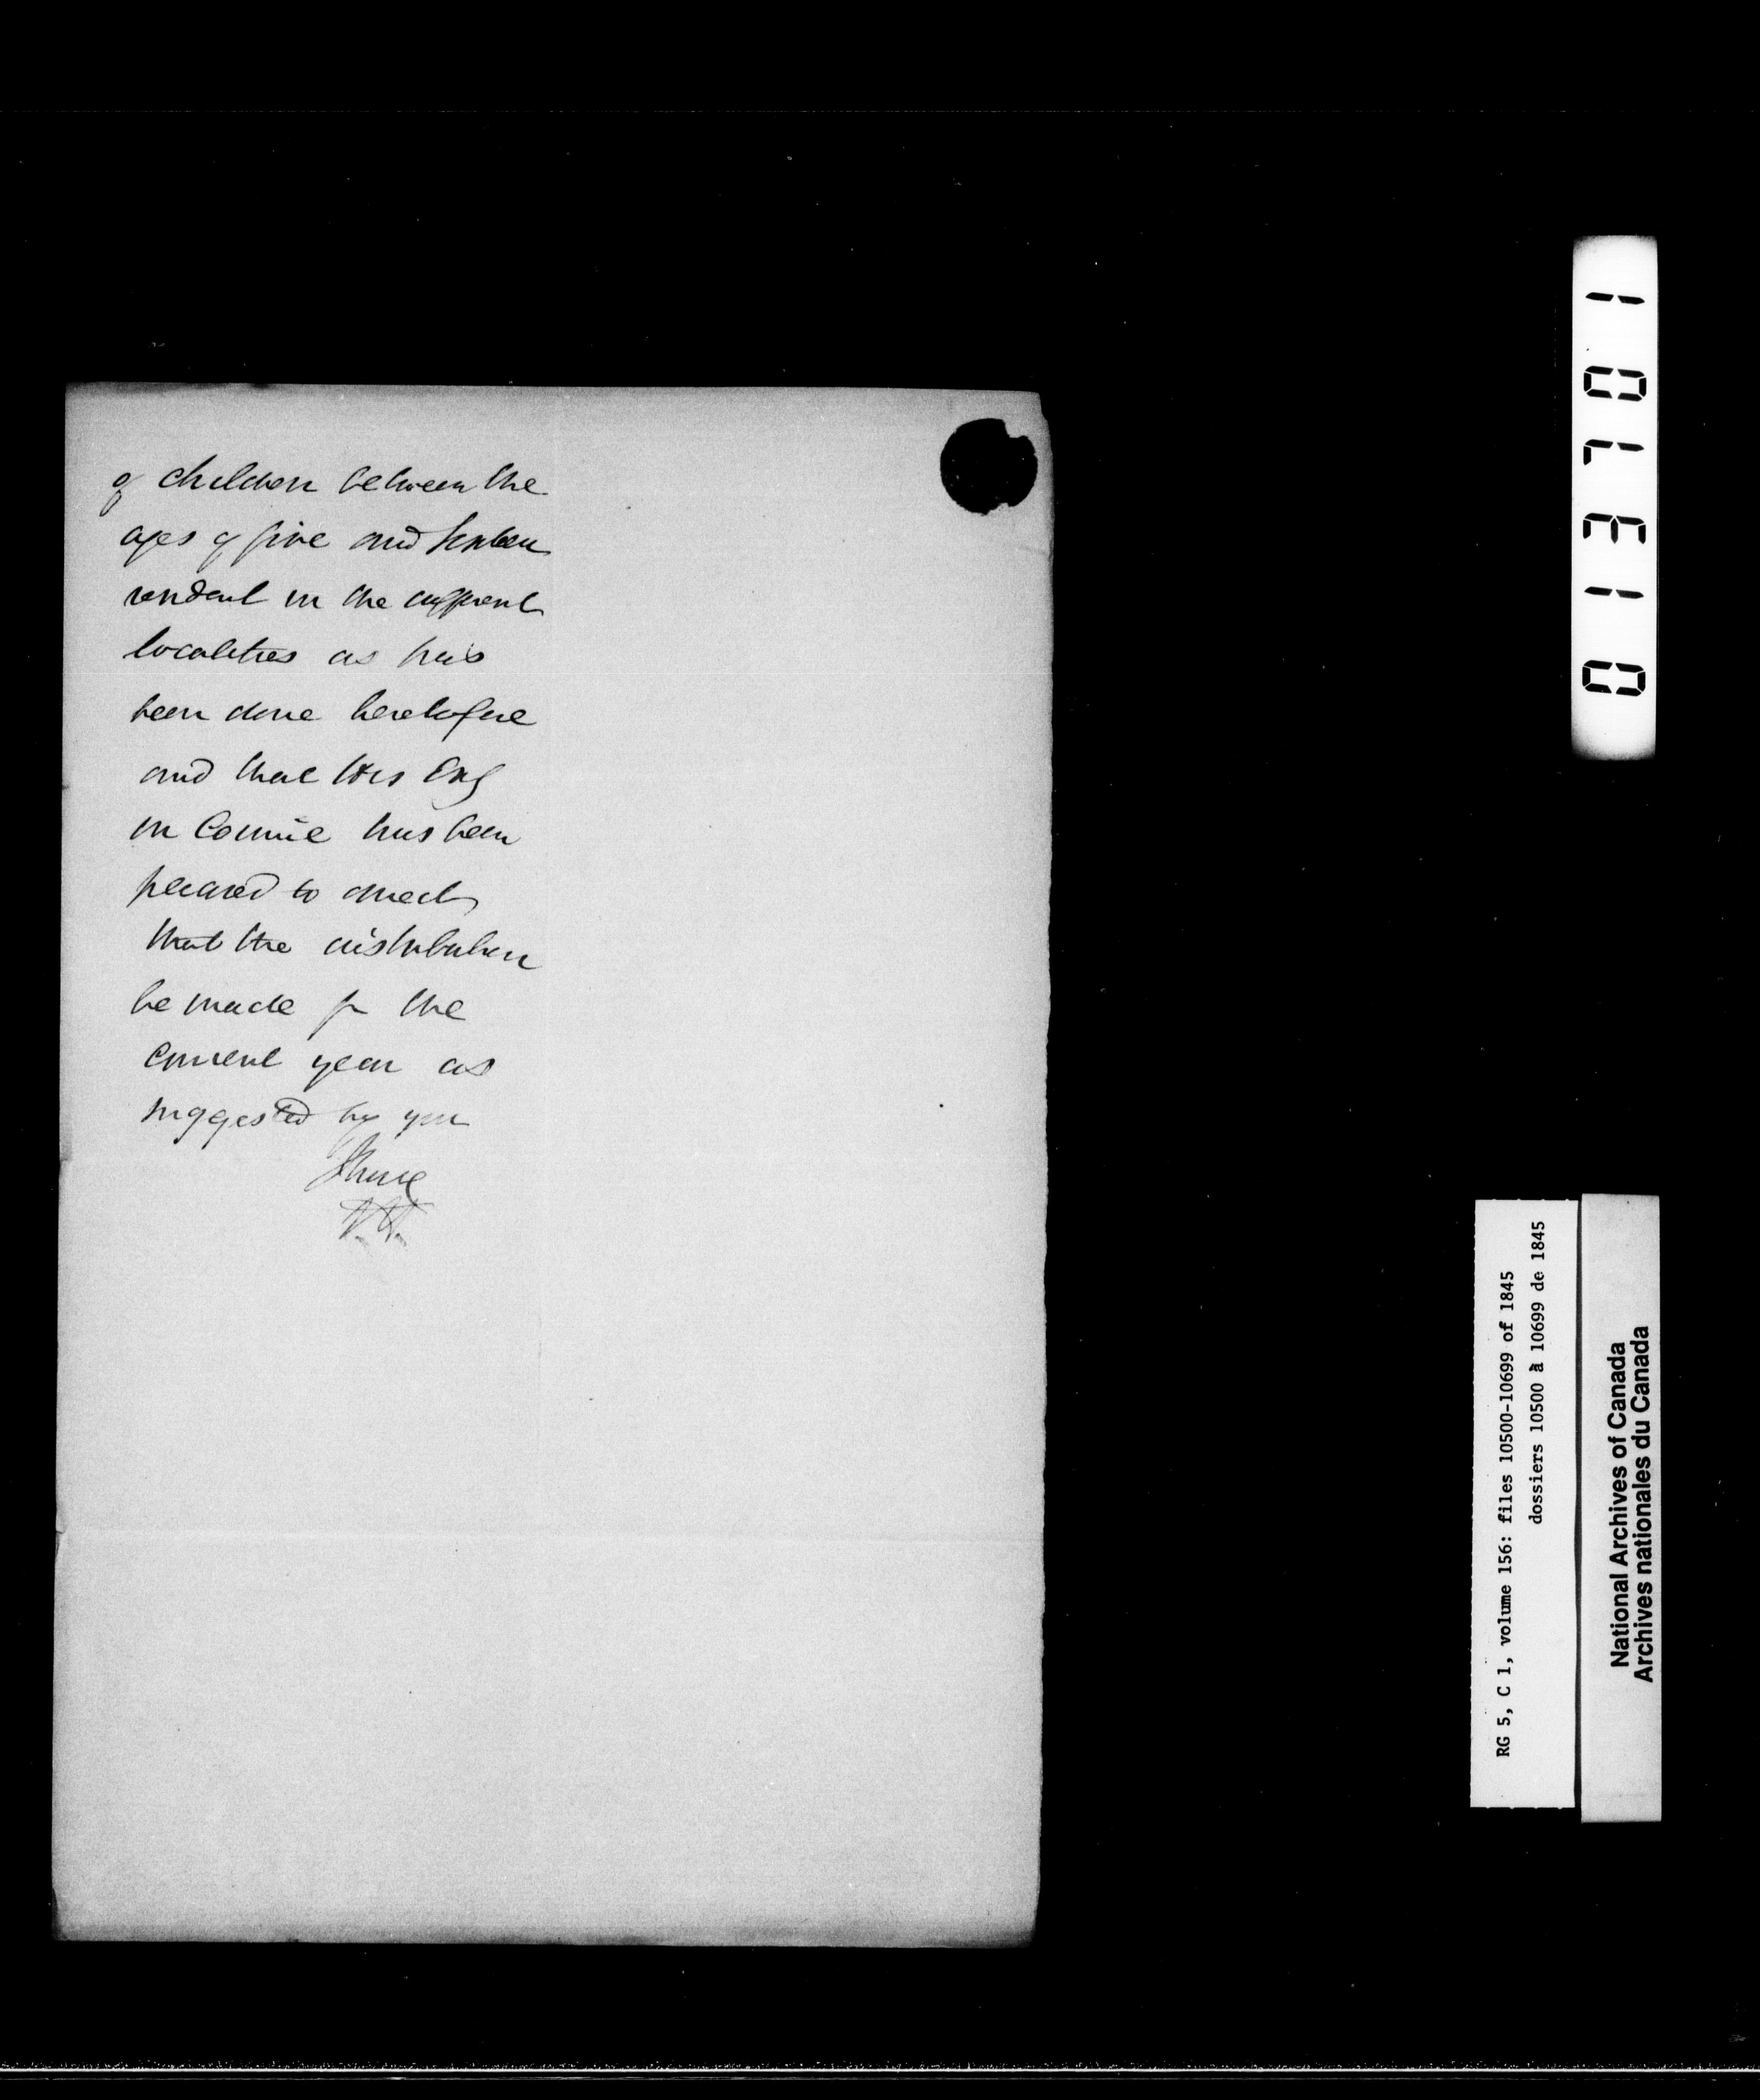 of children between the
ages of five and sixteen
resident in the different
localities as has
been done heretofore
and that His Exy
in Counc̅il has been
pleased to direct
that the distribution
be made for the
current year as
suggested by you
I have
101310
RG 5, C 1, volume 156: files 10500-10699 of 1845
dossiers 10500 à 10699 de 1845
National Archives of Canada
Archives nationales du Canada